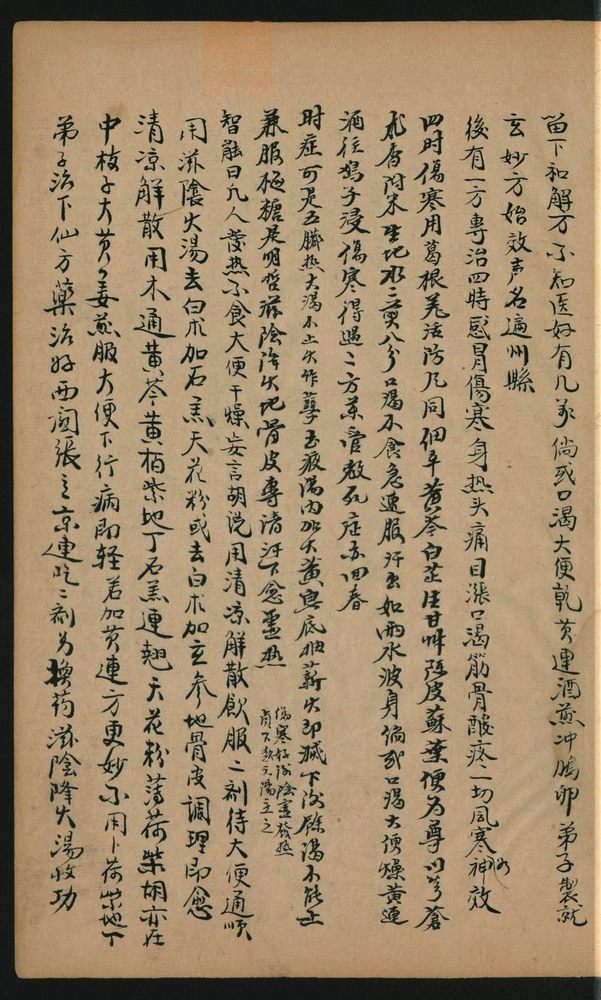 留下和解方不知医好有几家倘或口渴大便乾黄連酒煎冲鷄卵弟子製就
玄妙方始效声名遍州縣
後有一方專治四時感冒傷寒身热头痛目漲口渴筋骨酸疼一切風寒神效
四时傷寒用葛根羌活防风同细辛黄芩白芷生甘草陈皮蘇葉便为尊川芎蒼
术香附米生地水二鍾八分口渴不食急速服汗出如雨水波身倘或口渴大便燥黄連
酒往鸡子浸傷寒得遇二方藥管教死症亦回春
时症可是五臟热大渴不止火作孽玉液湯内加大黄與底抽薪火即滅下後餘渴不能止
兼服梔糖是明哲滋陰降火地骨皮專清汗下愈虛热
傷寒好後陰虛發热
貞下款元湯主之
智能曰凡人發热不食大便干燥妄言胡说用清凉解散飲服二剂待大便通顺
用滋陰火湯去白朮加石羔天花粉或去白朮加玄参地骨皮調理即愈
清凉解散用木通黄芩黄栢紫地丁石羔連翹天花粉薄荷柴胡亦在
中枝子大黄姜煎服大便下行病即轻若加黄連方更妙不用卜荷紫地丁
弟子治下仙方藥治好西阁張立京連吃二剂为換药滋陰降火湯收功